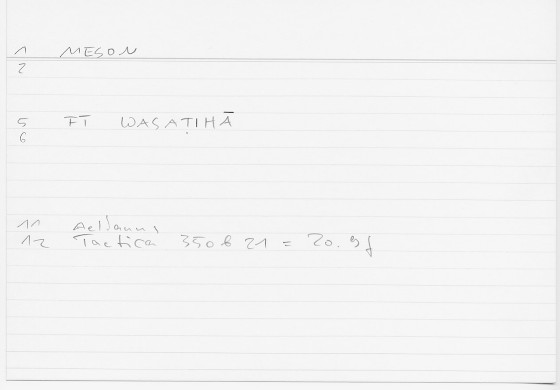 1 MESON
2
5 FĪ WASAṬIHĀ
6
11 Aelianus
12 Tactica 350 b 21 = 20.9f